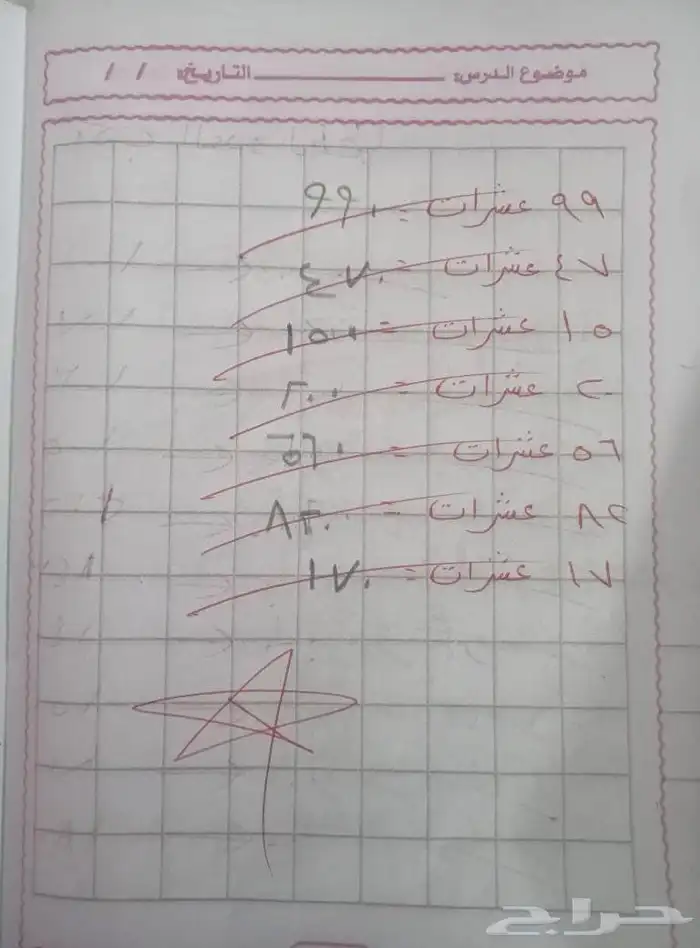 موضوع الدرس: ـــــــــــــــ التاريخ: / /
٩٩ عشرات = ٩٩٠
٤٧ عشرات = ٤٧٠
١٥ عشرات = ١٥٠
٢٠ عشرات = ٢٠٠
٥٦ عشرات = ٥٦٠
٨٢ عشرات = ٨٢٠
١٧ عشرات = ١٧٠
حراج